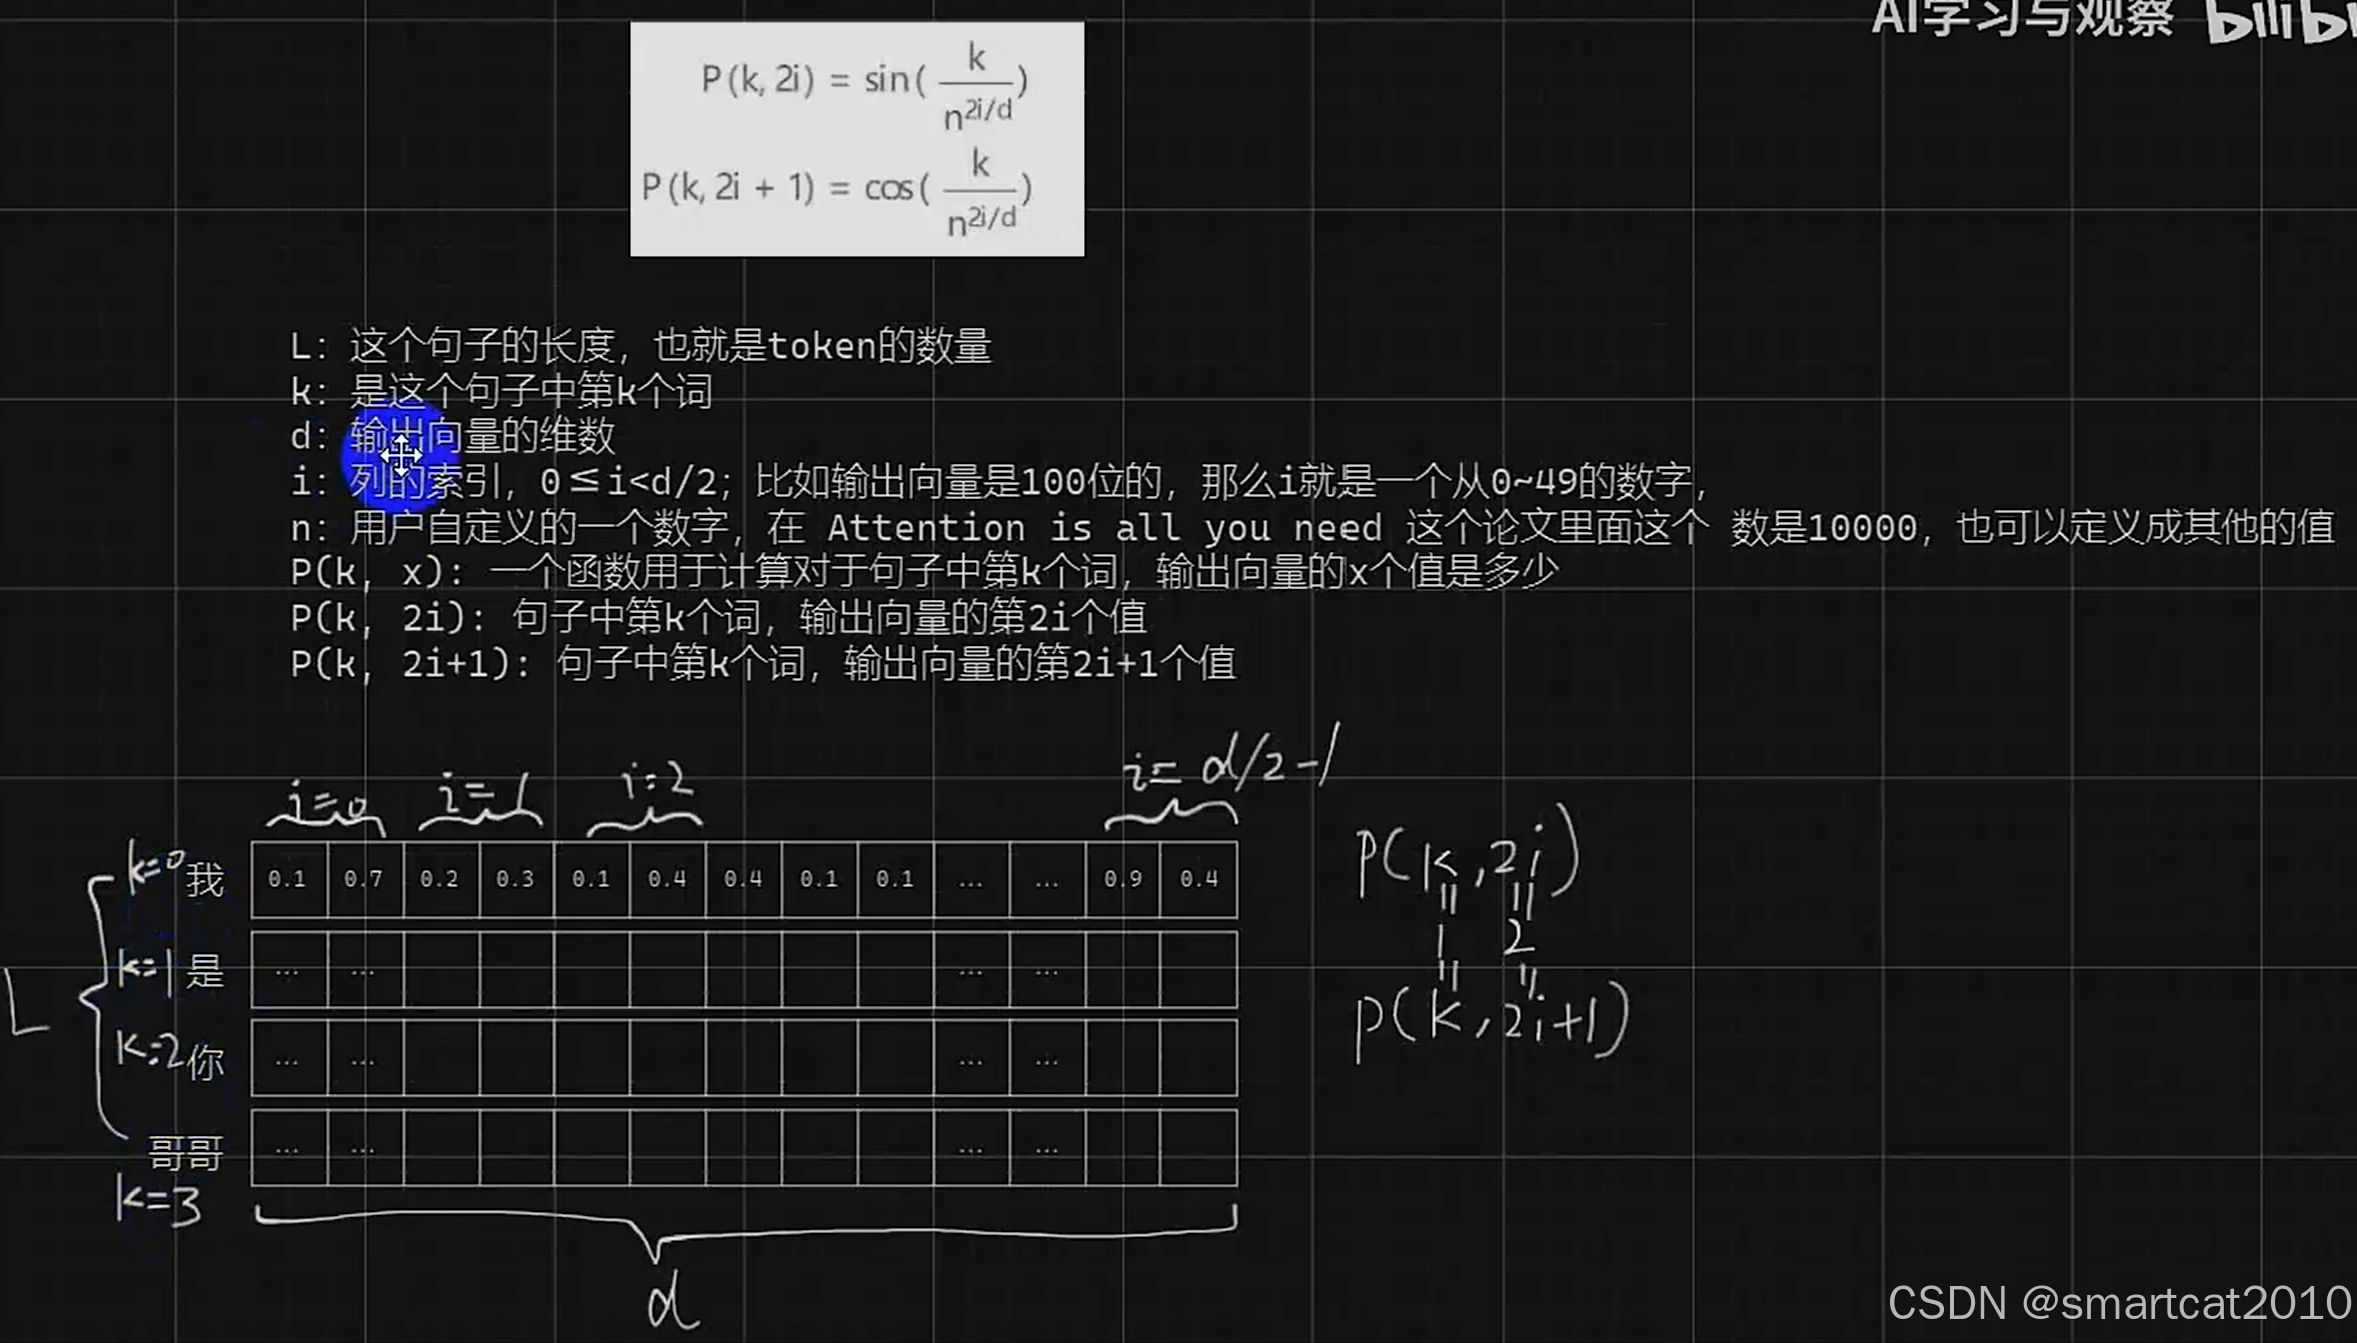 AI学习与观察 bilibi
P(k, 2i) = sin( k / n^2i/d )
P(k, 2i + 1) = cos( k / n^2i/d )
L: 这个句子的长度，也就是token的数量
k: 是这个句子中第k个词
d: 输出向量的维数
i: 列的索引，0≤i<d/2; 比如输出向量是100位的，那么i就是一个从0~49的数字，
n: 用户自定义的一个数字，在 Attention is all you need 这个论文里面这个 数是10000，也可以定义成其他的值
P(k, x): 一个函数用于计算对于句子中第k个词，输出向量的x个值是多少
P(k, 2i): 句子中第k个词，输出向量的第2i个值
P(k, 2i+1): 句子中第k个词，输出向量的第2i+1个值
i=0 i=1 i=2 i=d/2-1
k=0 我 0.1 0.7 0.2 0.3 0.1 0.4 0.4 0.1 0.1 ... ... 0.9 0.4
P(k,2i)
= =
1 2
= =
P(k,2i+1)
L
k=1 是 ... ... ... ...
k=2 你 ... ... ... ...
哥哥 ... ... ... ...
k=3
d
CSDN @smartcat2010